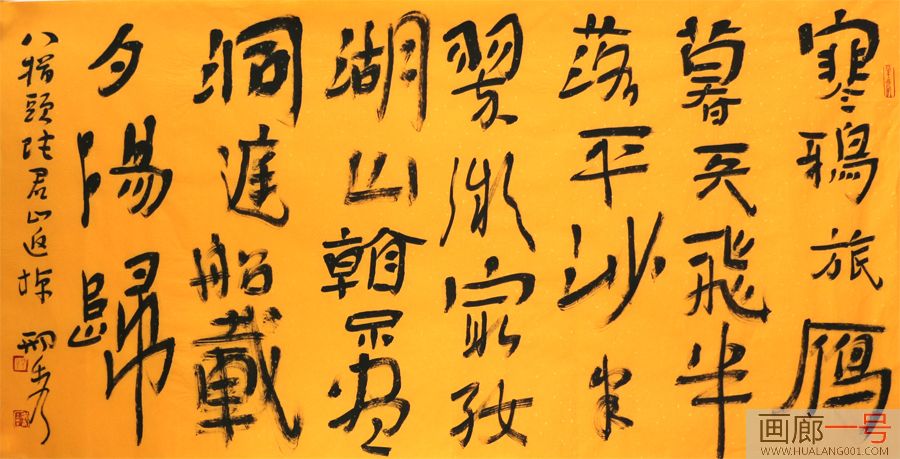 寒鴉旅雁
暮天飛半
落平沙半
翠微最好
湖山看不盡
洞庭船載
夕陽歸
八指頭陀君山返棹
画廊一号
WWW.HUALANG001.COM